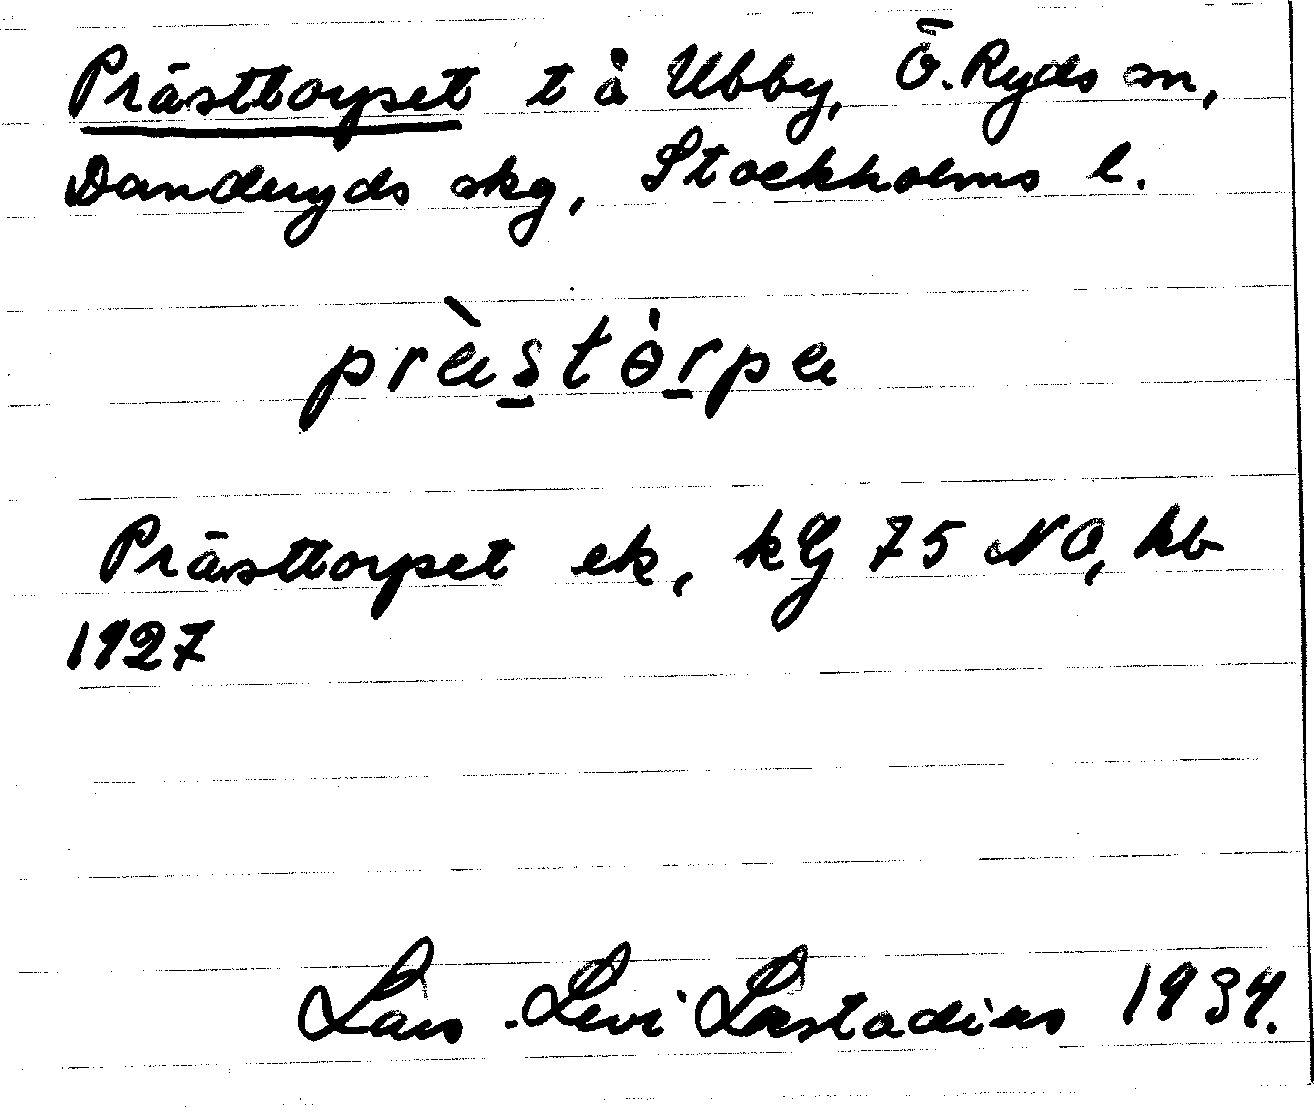 Prästtorpet t å Ubby, Ö. Ryds sn,
Danderyds skg, Stockholms l.
Prästtorpet ek, kG 75 NO, hb
1927
Lars Levi Læstadius 1934.